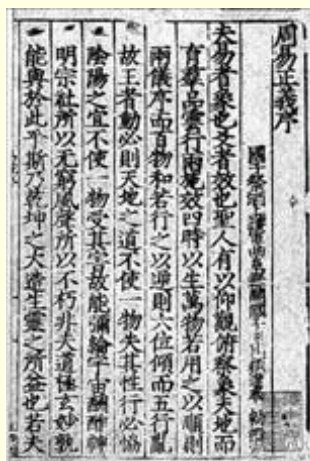 周易正義序
國子祭酒上護軍曲阜縣開國子
夫易者象也爻者效也聖人有以仰觀俯察象天地而
育羣品雲行雨施效四時以生萬物若用之以順則
兩儀序而百物和若行之以逆則六位傾而五行亂
故王者動必則天地之道不使一物失其性行必協
陰陽之宜不使一物受其害故能彌綸宇宙酬酢神
明宗社所以无窮風聲所以不朽非夫道極玄妙孰
能與於此乎斯乃乾坤之大造生靈之所益也若夫